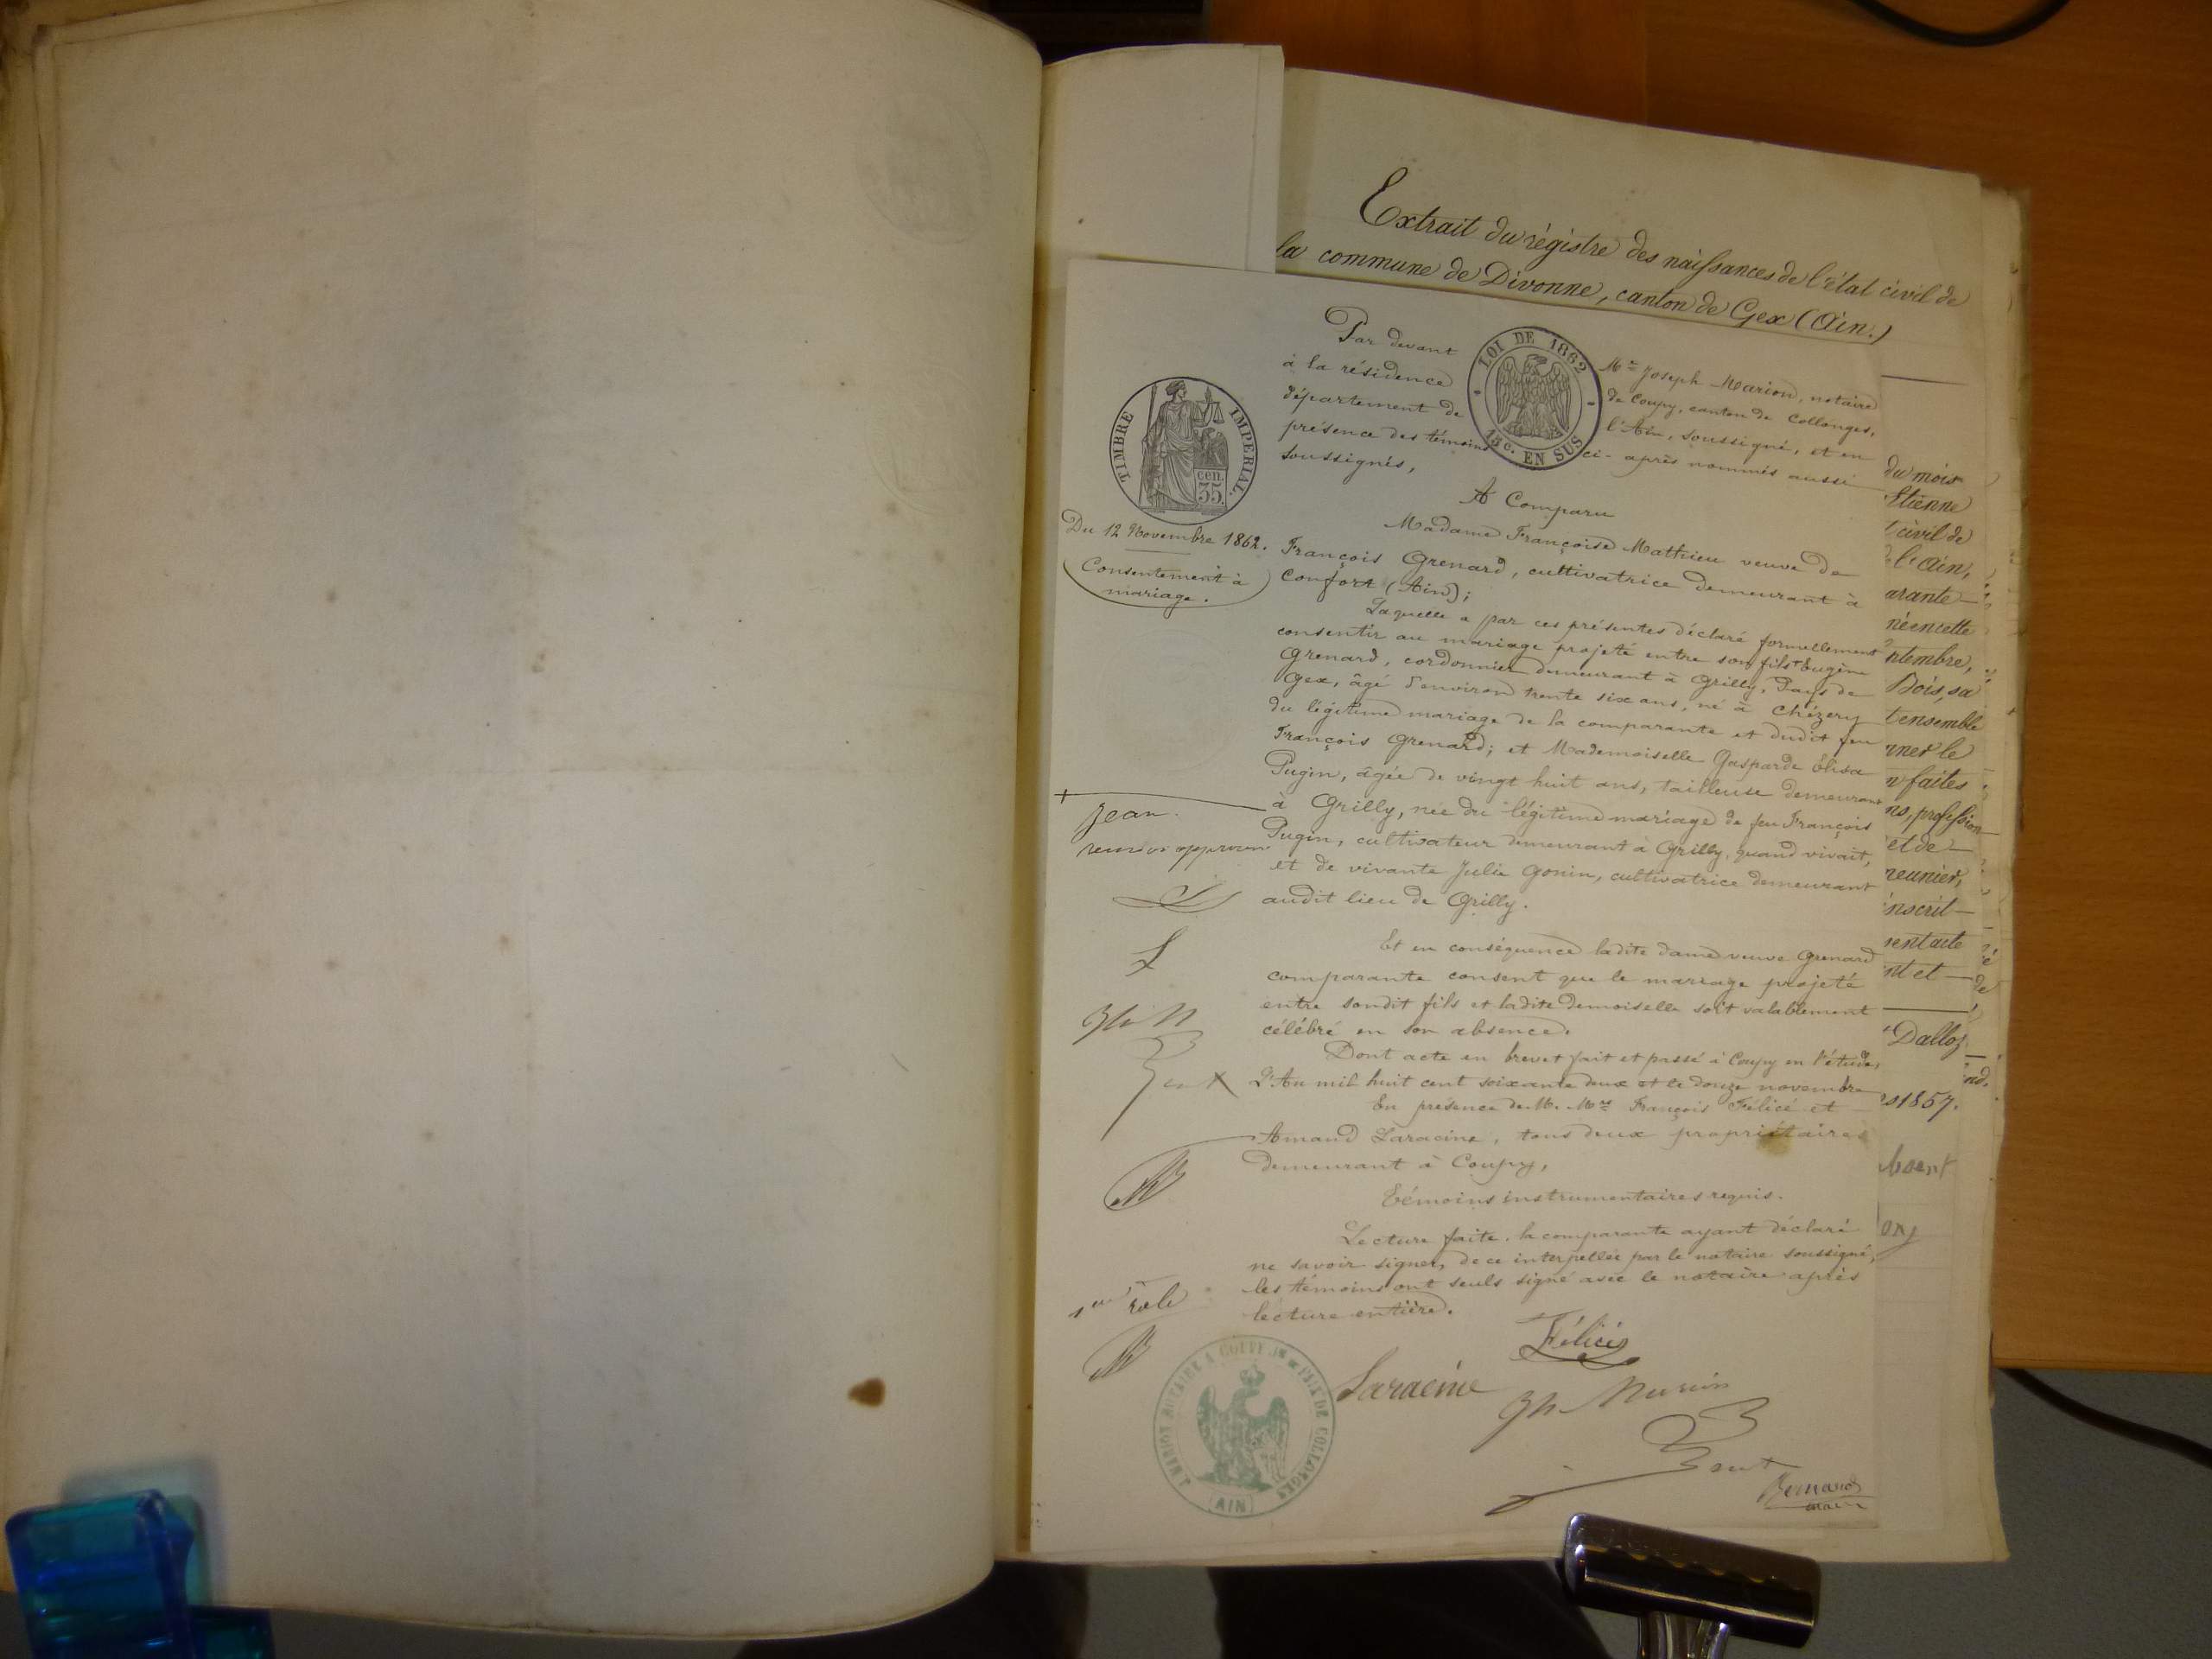 Extrait du régistre des naissances de l'état civil de
la commune de Divonne, canton de Gex (Ain.)
TIMBRE IMPERIAL.
cen.
35.
LOI DE 1862
15 c. EN SUS
Par devant Me Joseph Marion, notaire
à la résidence de Coupy, canton de Collonges,
département de l'Ain, soussigné, et en
présence des témoins ci-après nommés aussi
soussignés,
A Comparu
Du 12 Novembre 1862.
Consentement à
mariage.
Madame Françoise Mathieu veuve de
François Grenard, cultivatrice demeurant à
Confort (Ain);
Laquelle a par ces présentes déclaré formellement
consentir au mariage projeté entre son fils + Eugène
Grenard, cordonnier demeurant à Grilly, Pays de
Gex, âgé d'environ trente six ans, né à Chézery
du légitime mariage de la comparante et dudit feu
François Grenard; et Mademoiselle Gasparde Élisa
Pugin, âgée de vingt huit ans, tailleuse demeurant
à Grilly, née du légitime mariage de feu François
Pugin, cultivateur demeurant à Grilly, quand vivait,
et de vivante Julie Gonin, cultivatrice demeurant
audit lieu de Grilly.
+
Jean.
Et en conséquence ladite dame veuve Grenard
comparante consent que le mariage projeté
entre sondit fils et ladite demoiselle soit valablement
célébré en son absence.
Dont acte en brevet fait et passé à Coupy en l'étude,
L'An mil huit cent soixante deux et le douze novembre
En présence de M. Mrs François Félicé et
Amand Laracine, tous deux propriétaires
demeurant à Coupy,
Témoins instrumentaires requis.
Lecture faite, la comparante ayant déclaré
ne savoir signer, de ce interpellée par le notaire soussigné,
les témoins ont seuls signé avec le notaire après
lecture entière.
rôle
Félicé
Laracine
Jh Marion
J. MARION NOTAIRE A COUPY DE COLLONGES
(AIN)
du mois
Etienne
civil de
l'Ain,
arante
né en cette
ptembre,
Bois, sa
t ensemble
ner le
faites
ns, profession
et de
meunier,
inscrit
sent acte
nt et
Dalloz
1857.